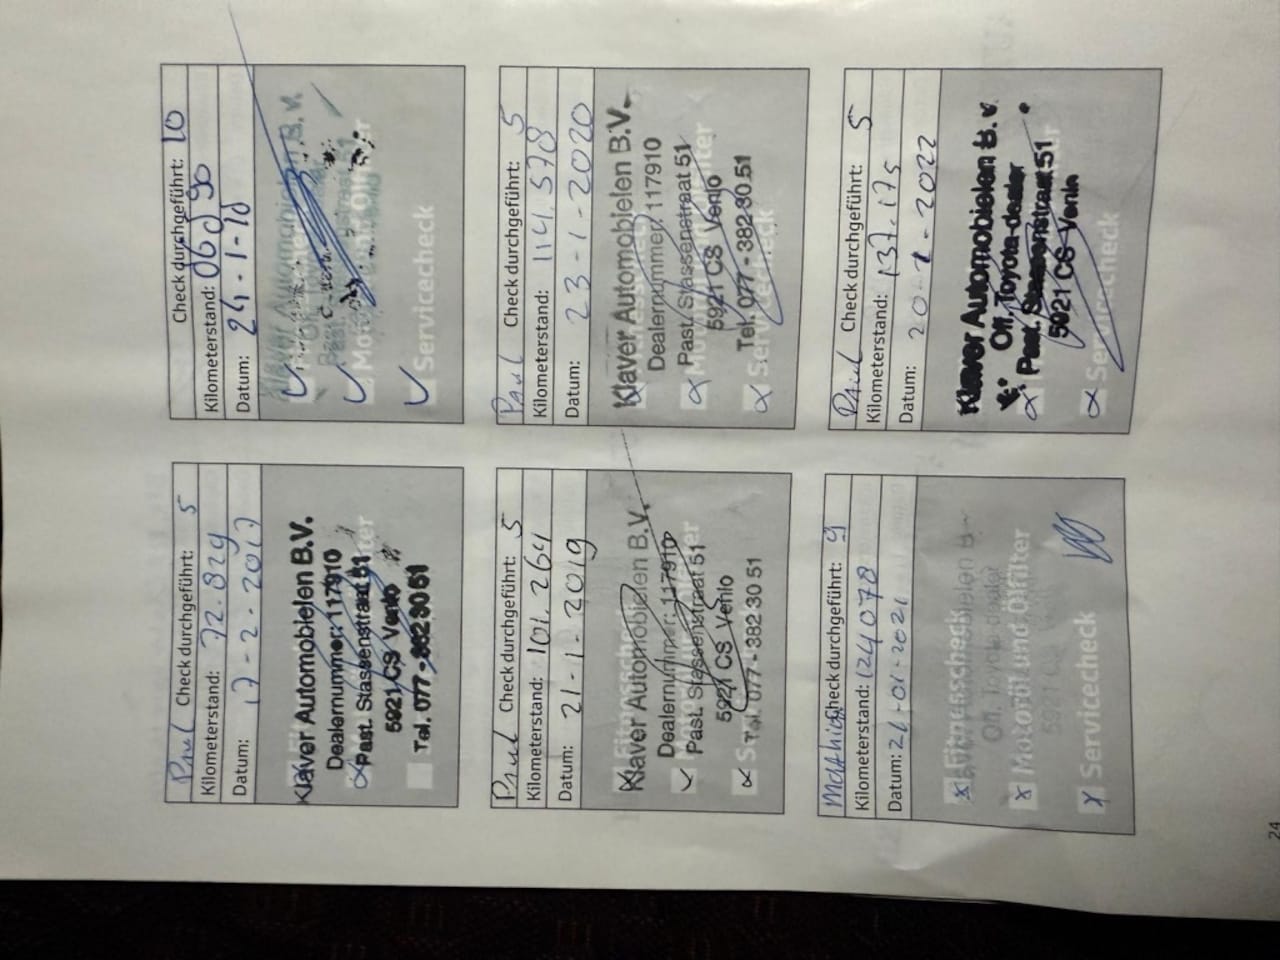 Paul Check durchgeführt: 5
Kilometerstand: 72.829
Datum: 17-2-2017
Klaver Automobielen B.V.
Dealernummer: 117910
Past. Stassenstraat 51
5921 CS Venlo
Tel. 077 - 382 30 51
Check durchgeführt: 10
Kilometerstand:
Datum:
Motoröl und Ölfilter
Servicecheck
Paul Check durchgeführt: 5
Kilometerstand: 101.264
Datum: 21-1-2019
Fitnesscheck
Klaver Automobielen B.V.
Dealernummer: 117910
Past. Stassenstraat 51
5921 CS Venlo
Tel. 077 - 382 30 51
Paul Check durchgeführt: 5
Kilometerstand: 114.578
Datum: 23-1-2020
Klaver Automobielen B.V.
Dealernummer: 117910
Past. Stassenstraat 51
5921 CS Venlo
Tel. 077 - 382 30 51
Servicecheck
Check durchgeführt: 9
Kilometerstand: 124078
Datum: 21-01-2021
Fitnesscheck
Off. Toyota dealer
Motoröl und Ölfilter
Servicecheck
Paul Check durchgeführt: 5
Kilometerstand: 137.175
Datum: 20-1-2022
Klaver Automobielen B.V.
Off. Toyota-dealer
Past. Stassenstraat 51
5921 CS Venlo
Servicecheck
24